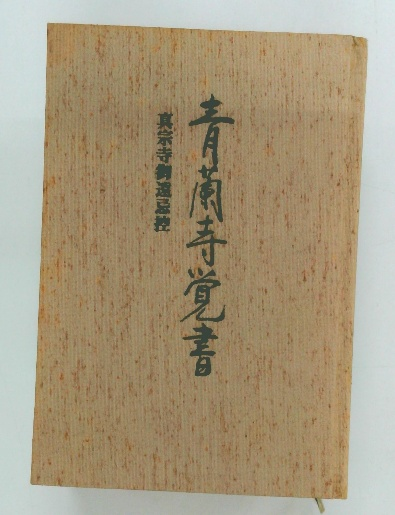 青蘭寺覚書
真宗寺御遠忌控